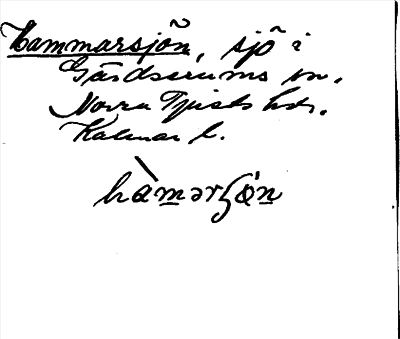 Hammarsjön, sjö i
Gärdserums sn.
Norra Tjusts hds.
Kalmar l.
hàmərʃøn